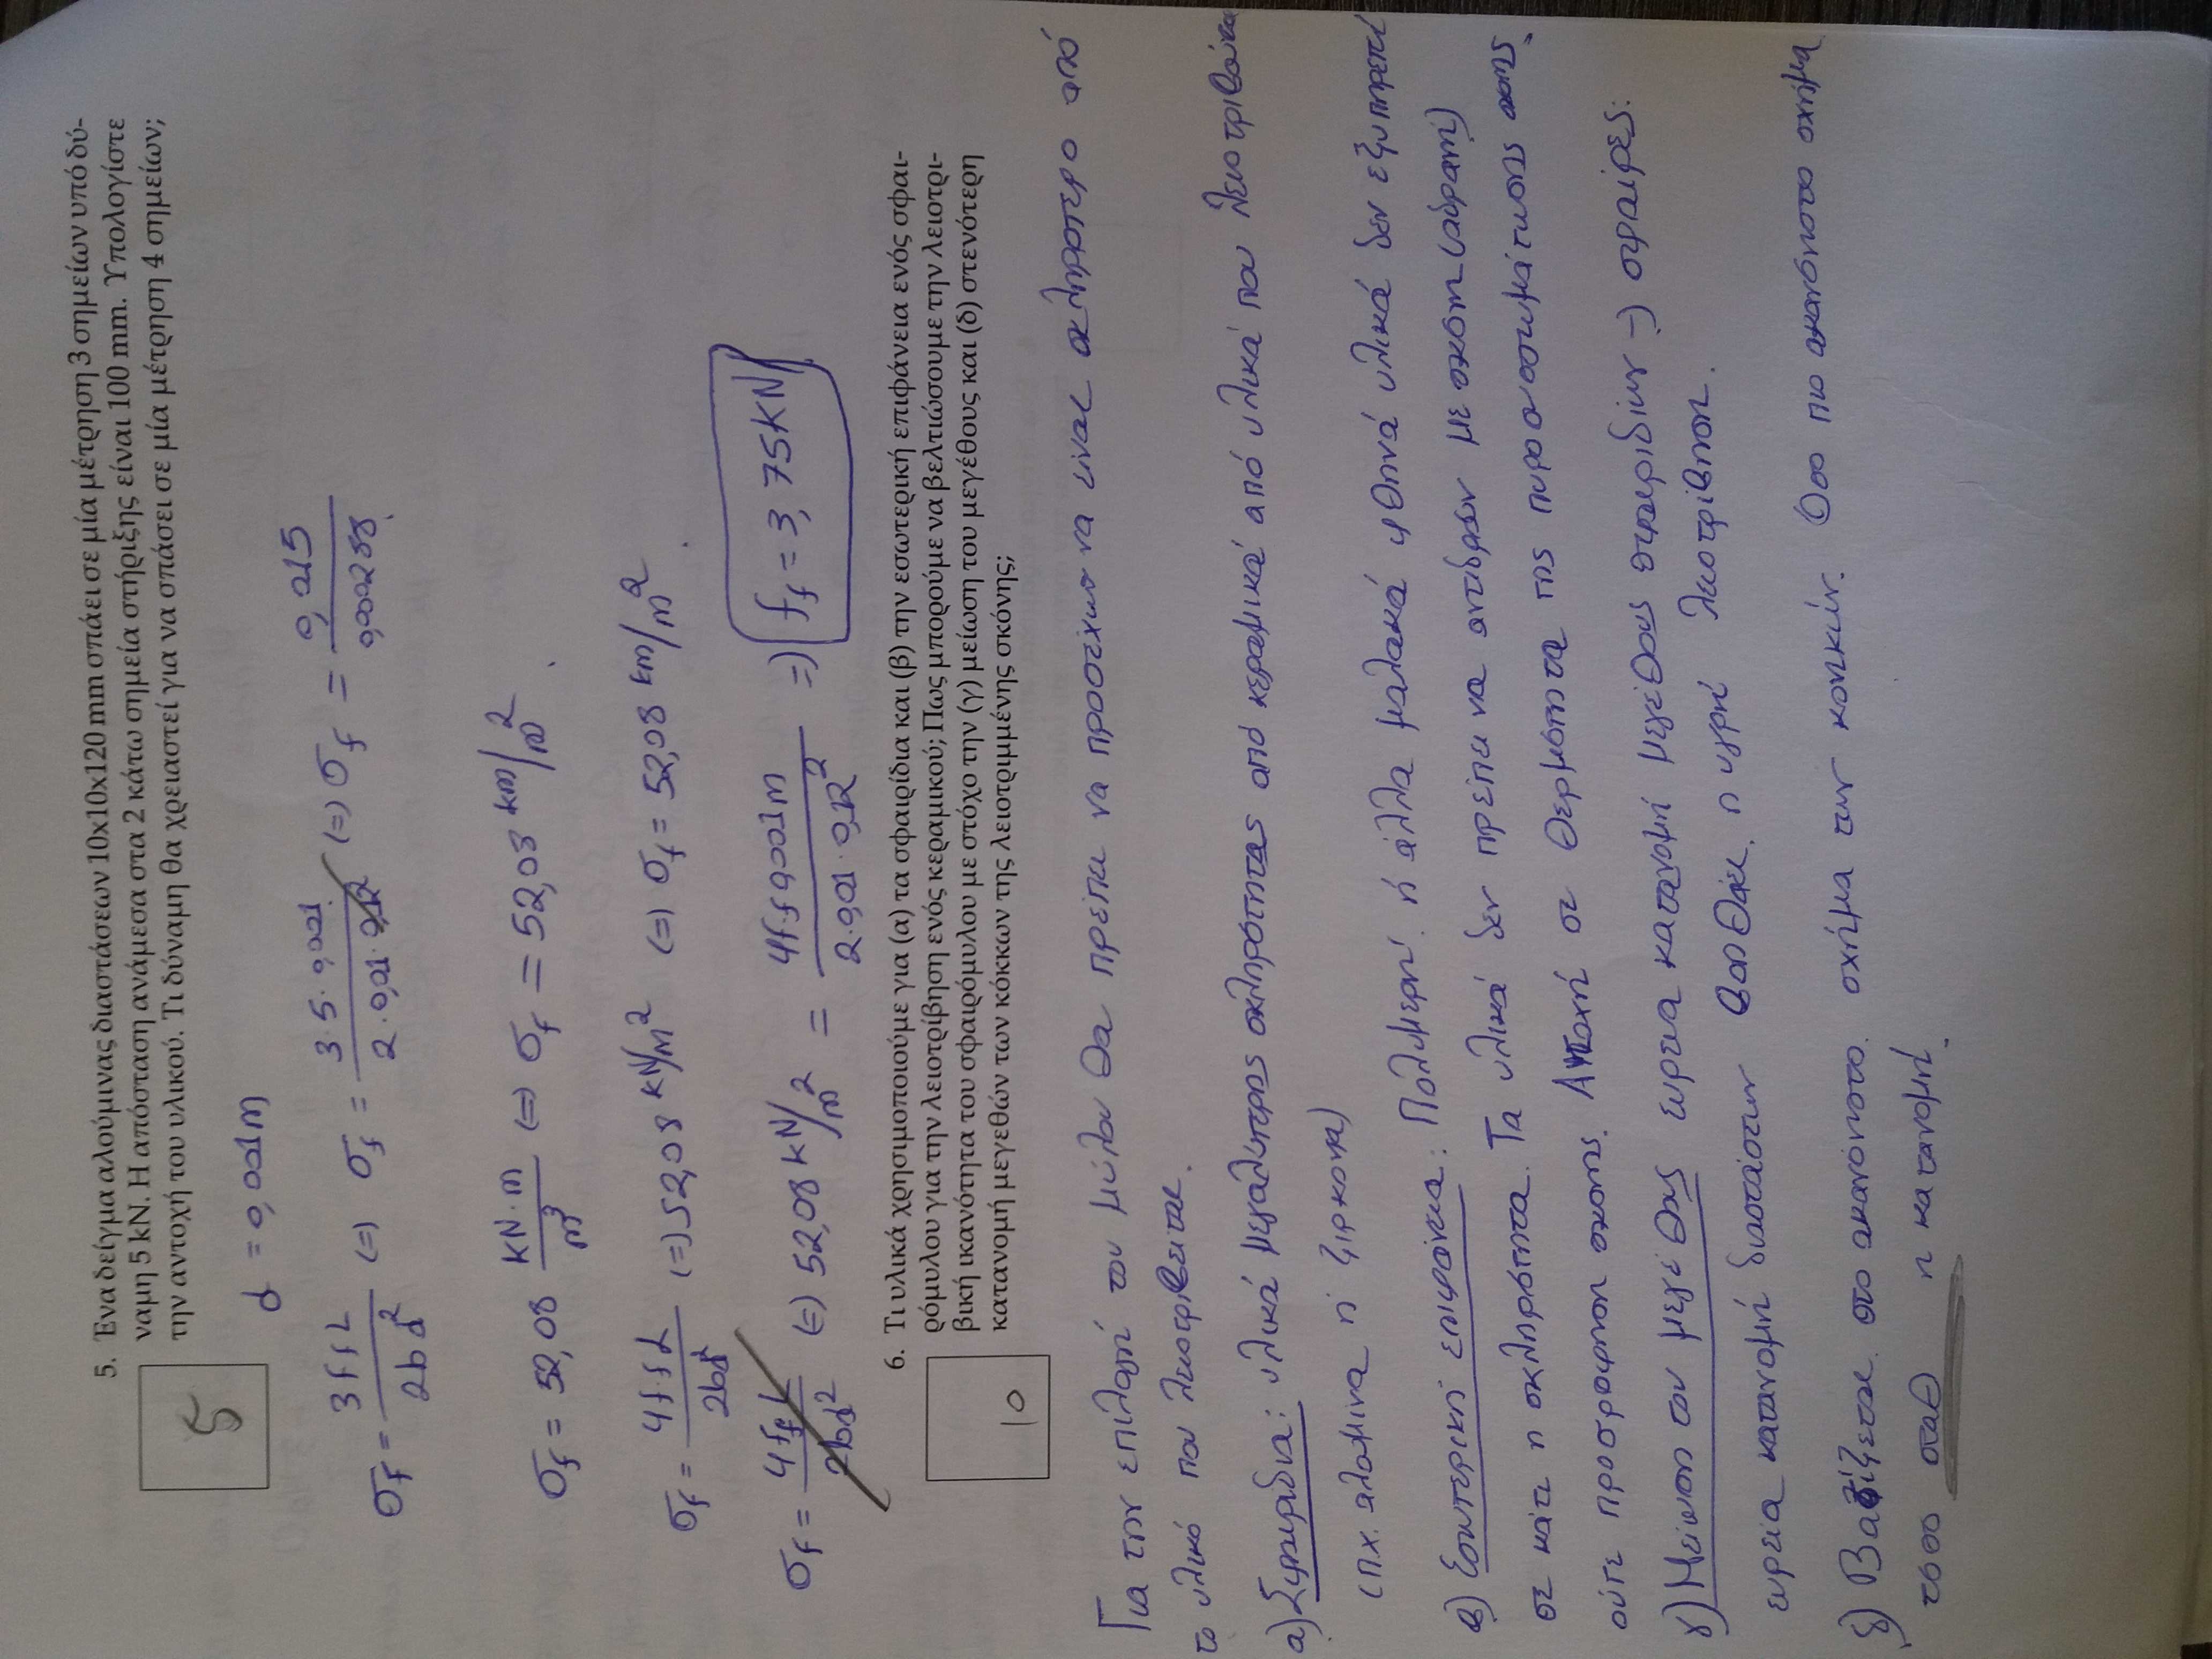 5. Ένα δείγμα αλούμινας διαστάσεων 10x10x120 mm σπάει σε μία μέτρηση 3 σημείων υπό δύ-
ναμη 5 kN. Η απόσταση ανάμεσα στα 2 κάτω σημεία στήριξης είναι 100 mm. Υπολογίστε
την αντοχή του υλικού. Τι δύναμη θα χρειαστεί για να σπάσει σε μία μέτρηση 4 σημείων;
5
d = 0,001m
σf = 3 Ff L / 2bd² (=) σf = 3·5·0,001 / 2·0,01·0,12 (=) σf = 0,015 / 0,000288
σf = 52,08 kN·m / m³ (=) σf = 52,08 km/m²
σf = 4 Ff L / 2bd² (=) 52,08 kN/m² (=) σf = 52,08 km/m²
σf = 4 Ff L / 2bd² (=) 52,08 kN/m² = 4 Ff 0,001m / 2·0,01·0,12² =) Ff = 3,75KN
6. Τι υλικά χρησιμοποιούμε για (α) τα σφαιρίδια και (β) την εσωτερική επιφάνεια ενός σφαι-
ρόμυλου για την λειοτρίβηση ενός κεραμικού; Πως μπορούμε να βελτιώσουμε την λειοτρι-
βική ικανότητα του σφαιρόμυλου με στόχο την (γ) μείωση του μεγέθους και (δ) στενότερη
κατανομή μεγεθών των κόκκων της λειοτριμμένης σκόνης;
10
Για την επιλογή του μύλου θα πρέπει να προσέχουν να είναι σκληρότερο από
το υλικό που λειοτριβείται.
α) Σφαιρίδια: υλικά μεγαλύτερης σκληρότητας από κεραμικά από υλικά που λειοτριβούνται
(πχ. αλουμινα ή ζιρκονια)
β) Εσωτερική επιφάνεια: Πολυμερή ή άλλα μαλακά φθηνά υλικά δεν εξυπηρετεί
σε κάτι η σκληρότητα. Τα υλικά δεν πρέπει να αντιδράν με σκόνη (αδρανή)
ούτε προσρόφηση σκόνης. Αντοχή σε θερμότητα της πυροσυσσωμάτωσης σκόνης.
γ) Μείωση του μεγέθους ευρεία κατανομή μεγέθους σφαιριδίων -) σφαίρες:
ευρεία κατανομή διαστάσεων βοηθάει η υγρή λειοτρίβηση.
δ) Βασίζεται στο ακανόνιστο σχήμα των κόκκων. Όσο πιο ακανόνιστο σχήμα
τόσο η κατανομή.